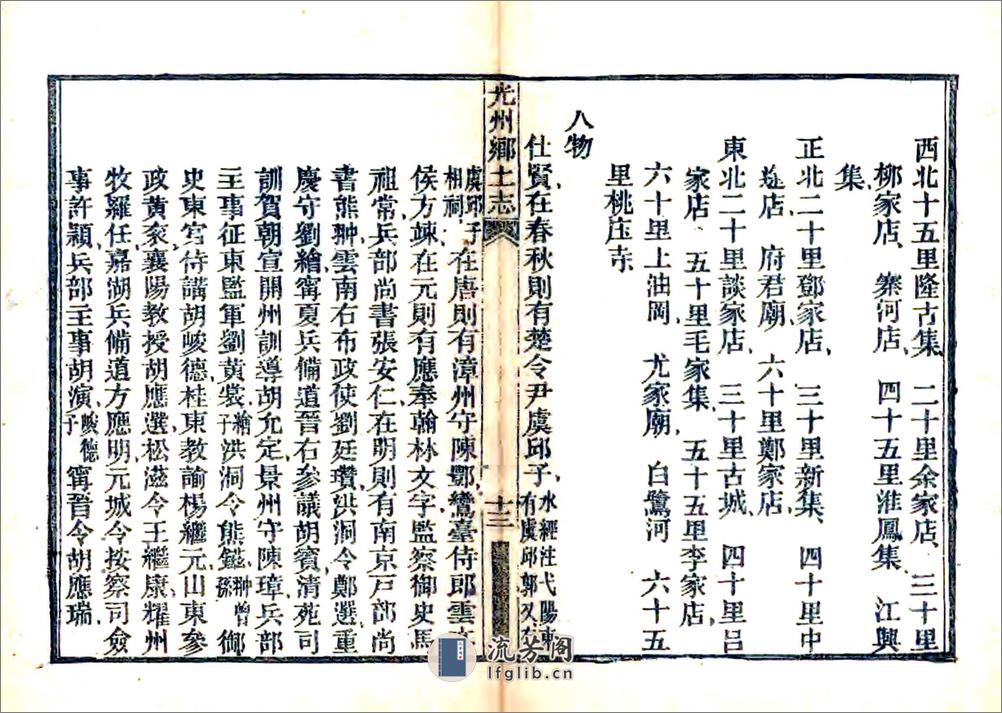 西北十五里隆古集、二十里余家店、三十里
柳家店、寨河店、四十五里淮鳳集、江興
集、
正北二十里鄧家店、三十里新集、四十里中
途店、府君廟、六十里鄭家店、
東北二十里談家店、三十里古城、四十里呂
家店、五十里毛家集、五十五里李家店、
六十里上油岡、尤家廟、白鷺河、六十五
里桃庄寺、
人物
仕賢、在春秋則有楚令尹虞邱子、水經注弋陽東有虞邱郭又有
光州鄉土志
十三
虞邱子相祠、在唐則有漳州守陳酆、鸞臺侍郎雲
侯方竦、在元則有應奉翰林文字、監察御史馬
祖常、兵部尚書張安仁、在明則有南京戸部尚
書熊翀、雲南右布政使劉廷瓚、洪洞令鄭選、重
慶守劉繪、甯夏兵備道晉右參議胡賓、清苑司
訓賀朝宣、開州訓導胡允定、景州守陳璋、兵部
主事征東監軍劉黃裳、繪子洪洞令熊鎰、翀曾孫御
史東宮侍講胡峻德、桂東教諭楊繼元、山東參
政黃袞、襄陽教授胡應選、松滋令王繼康、耀州
牧羅任、嘉湖兵備道方應明、元城令按察司僉
事許穎、兵部主事胡演、峻德子甯晉令胡應瑞、
流芳閣
lfglib.com